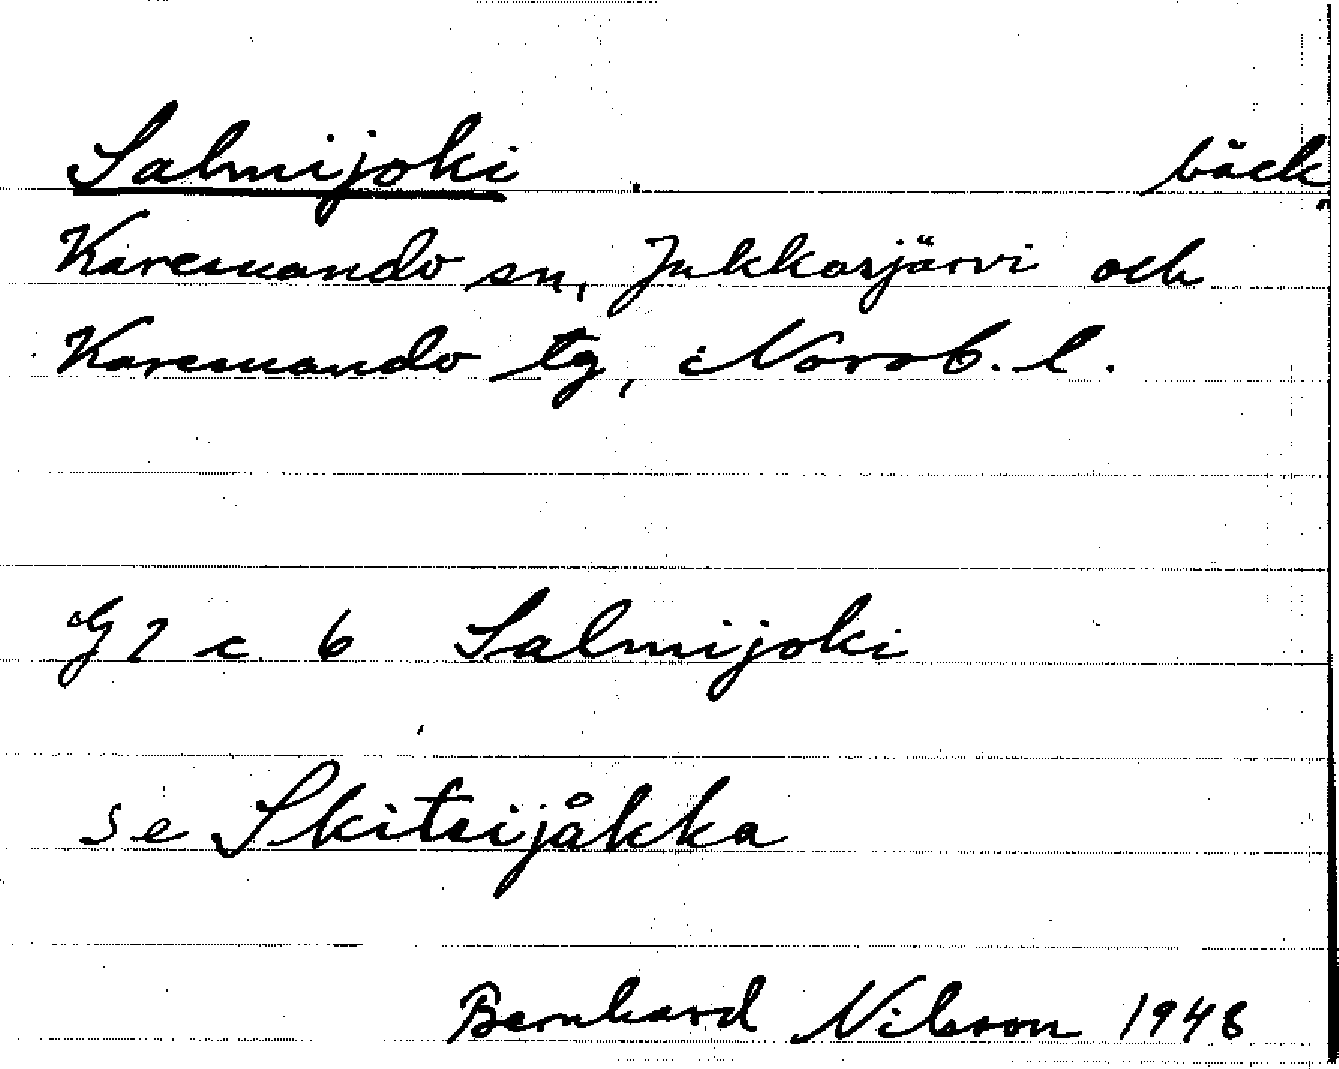 Salmijoki bäck
Karesuando sn, Jukkasjärvi och
Karesuando tg, Norrb. l.
G 2 c 6 Salmijoki
se Skitsijåkka
Bernhard Nilsson 1948